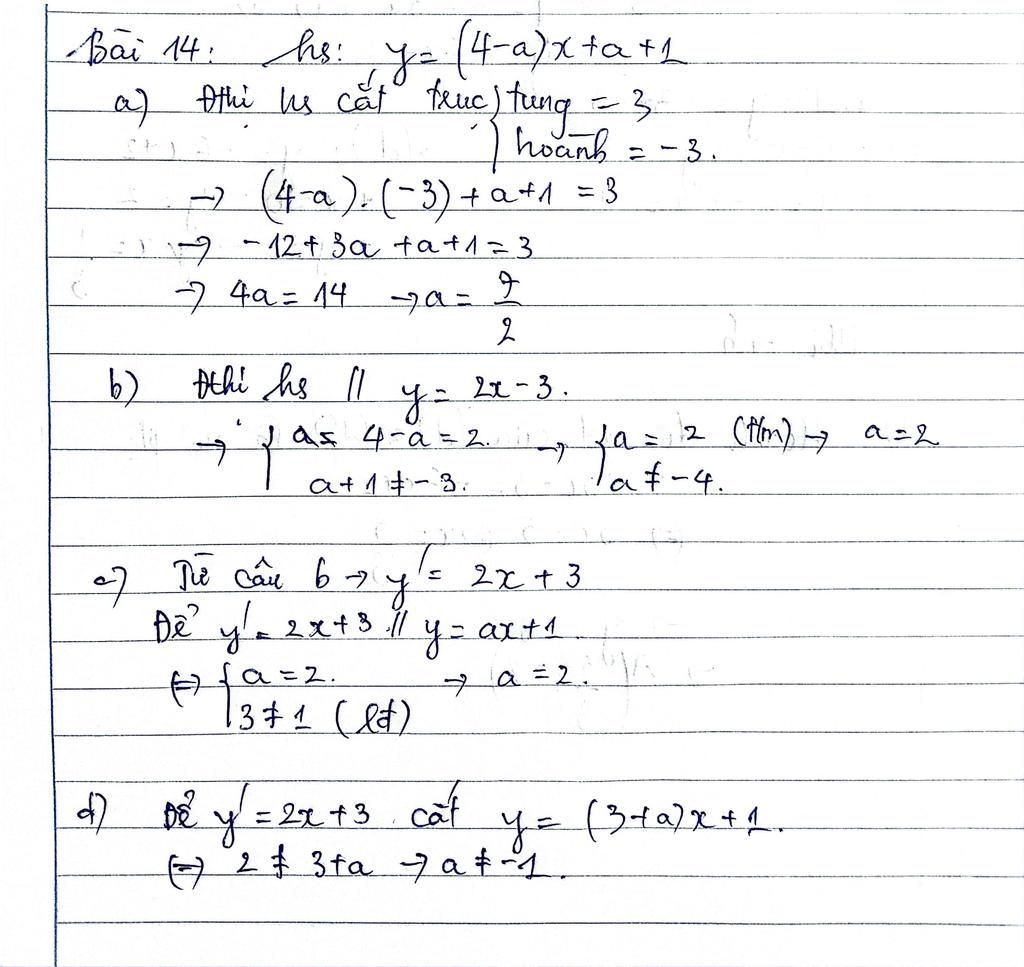 Bài 14: hs: y = (4-a)x+a+1
a) Đthị hs cắt trục { tung = 3
hoành = -3.
→ (4-a).(-3)+a+1 = 3
→ -12+3a+a+1=3
→ 4a = 14 → a = 7/2
b) Đthị hs // y = 2x-3.
→ { a = 4-a = 2. → { a = 2 (t/m) → a=2
a+1 ≠ -3. a ≠ -4.
c) Từ câu b → y' = 2x+3
Để y' = 2x+3 // y = ax+1
⇔ { a = 2. → a = 2.
3 ≠ 1 (lđ)
d) Để y' = 2x+3 cắt y = (3+a)x+1.
⇔ 2 ≠ 3+a → a ≠ -1.